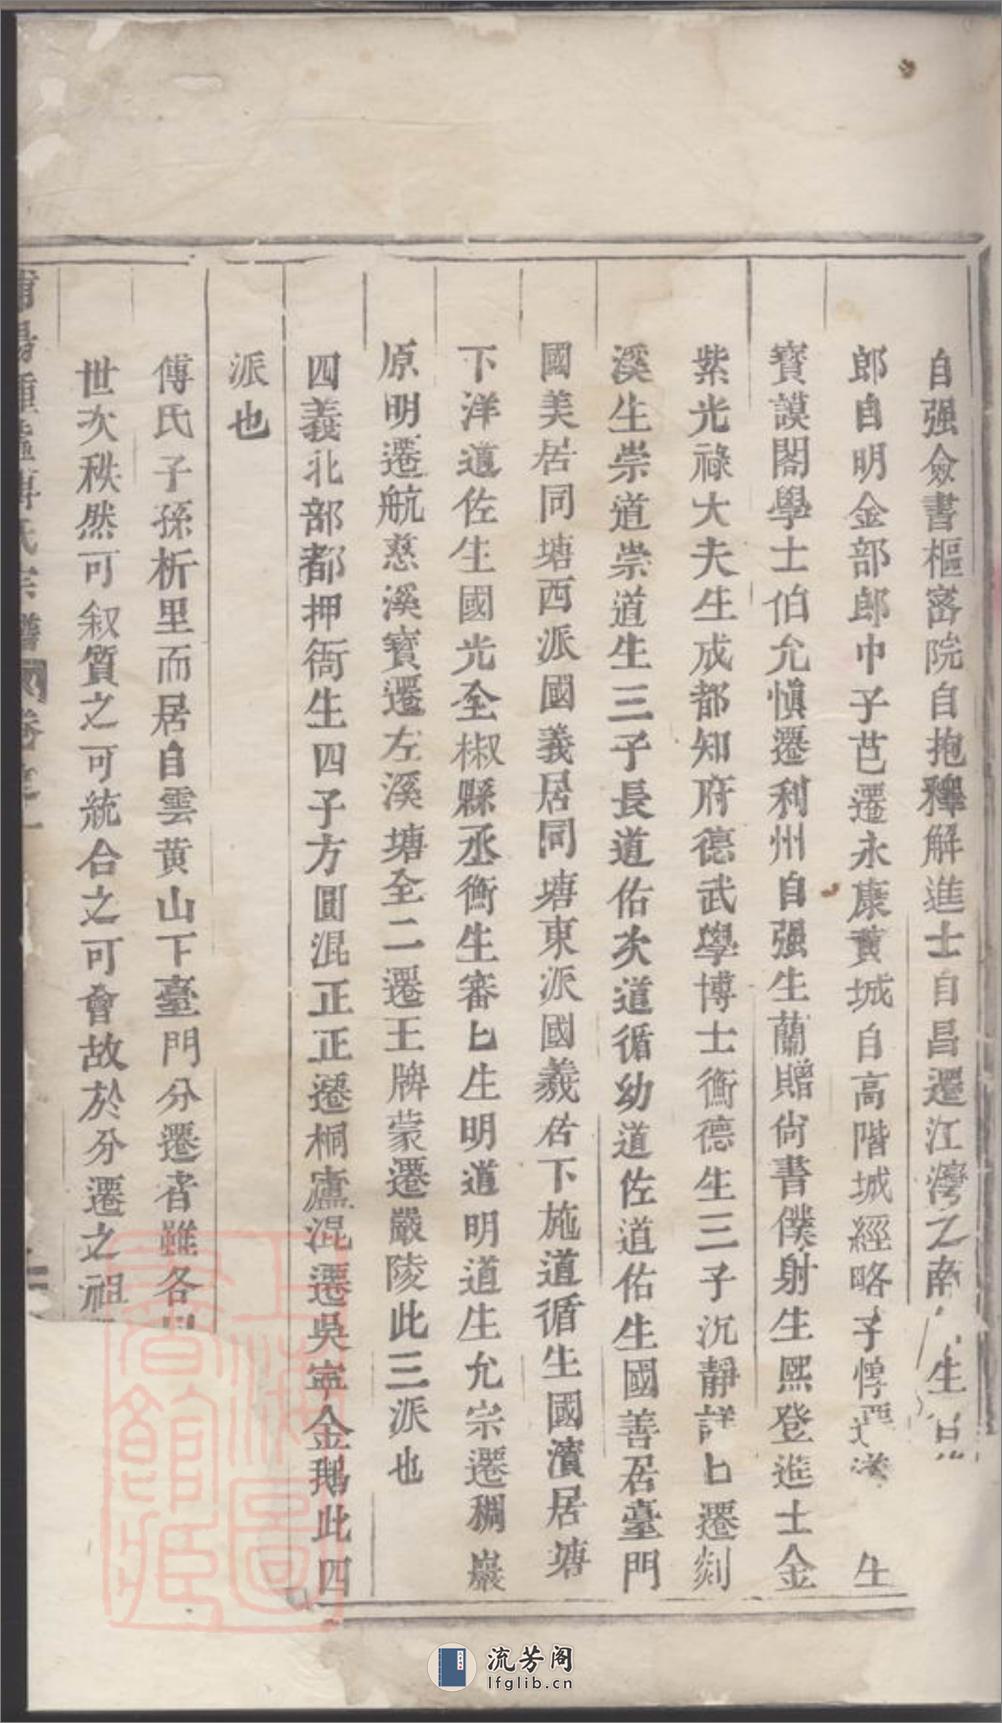 自强僉書樞密院自抱釋解進士自昌遷江灣之南生
郎自明金部郎中子芑遷永康黄城自高階城經略子惇 生
寶謨閣學士伯允慎遷利州自强生蘭贈尙書僕射生熙登進士金
紫光祿大夫生成都知府德武學博士衡德生三子沉靜詳匕遷剡
溪生崇道崇道生三子長道佑次道循幼道佐道佑生國善居臺門
國美居同塘西派國義居同塘東派國義居下施道循生國濱居塘
下洋道佐生國光全椒縣丞衡生審匕生明道明道生允宗遷稠巖
原明遷航慈溪寶遷左溪塘全二遷王牌蒙遷嚴陵此三派也
四義北部都押衙生四子方圓混正正遷桐廬混遷吳寧金鵝此四
派也
傅氏子孫析里而居自雲黄山下臺門分遷者雖各
世次秩然可叙質之可統合之可會故於分遷之祖
傅氏宗譜 卷之一
上海圖書館藏
流芳阁
lfglib.cn